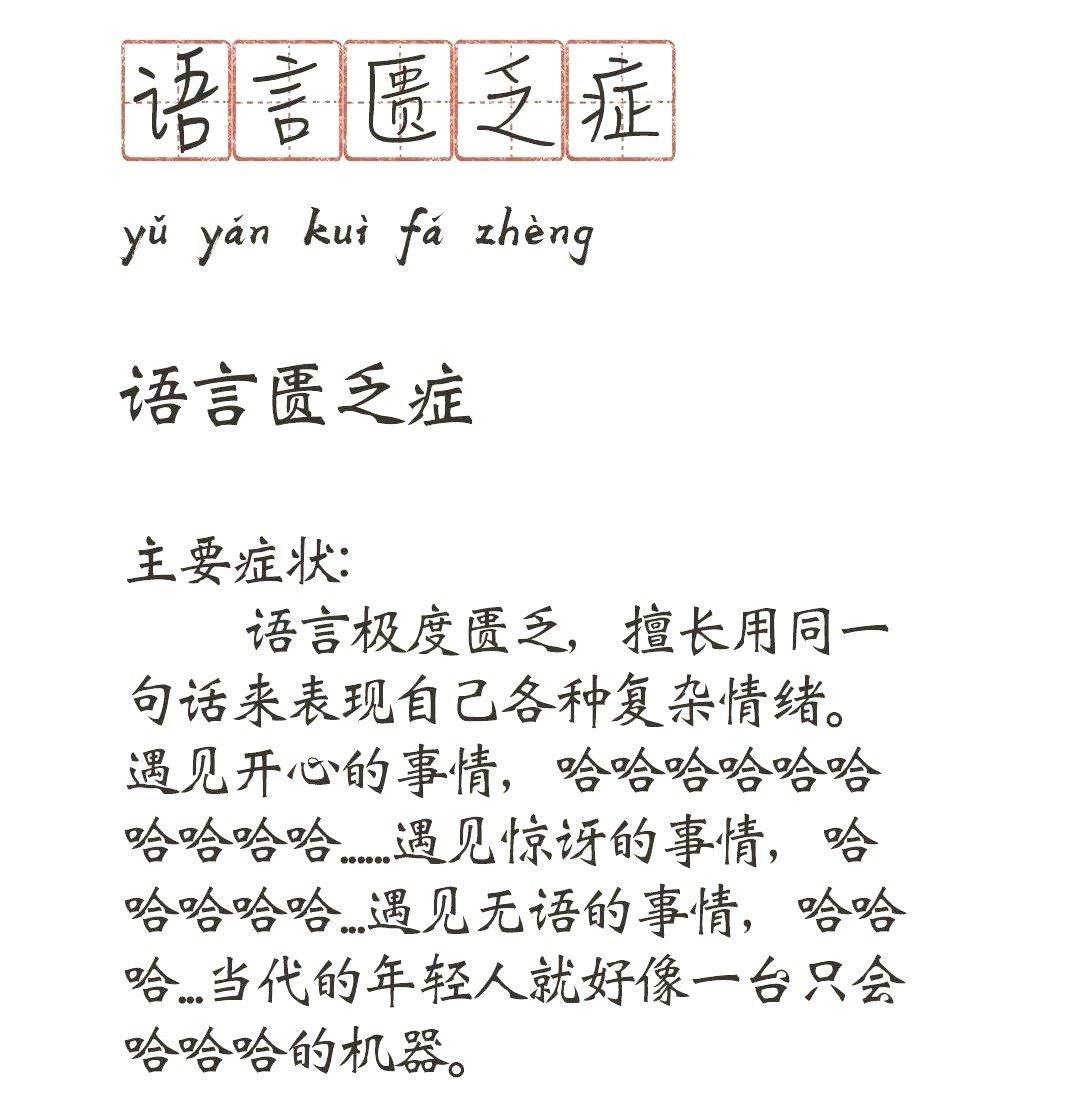 语言匮乏症
yǔ yán kuì fá zhèng
语言匮乏症
主要症状:
语言极度匮乏，擅长用同一
句话来表现自己各种复杂情绪。
遇见开心的事情，哈哈哈哈哈哈
哈哈哈哈......遇见惊讶的事情，哈
哈哈哈哈...遇见无语的事情，哈哈
哈...当代的年轻人就好像一台只会
哈哈哈的机器。